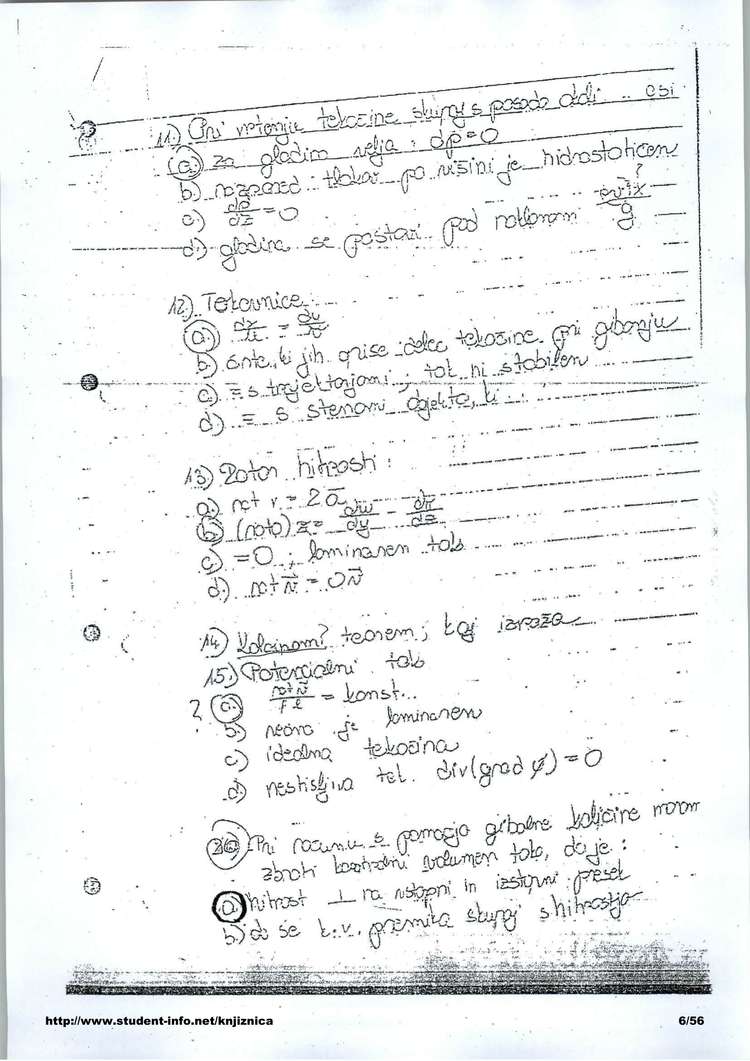 11.) Pri vrtenju tekočine skupaj s posodo okoli .. osi
(a.) za gladino velja : dp=0
b.) razpored tlakov po višini je hidrostatičen
c.) dp/dz = 0
d.) gladina se postavi pod naklonom /g ?
12.) Tokovnice
(a.) dx/u = dy/v
b.) črte, ki jih opiše delec tekočine pri gibanju
c.) = s trajektorjami ; tok ni stabilen
d.) = s stenami objekta, ki
13.) Rotor hitrosti :
a.) rot v = 2
(b.) (roto) z = dw/dy - dv/dz
c.) = 0 ; laminaren tok
d.) rot v = 0
14.) teorem ; kaj izraža
15.) Potencialni tok
? (a.) rot v / = konst...
b.) je laminaren
c.) idealna tekočina
d.) nestisljiva tek. div(grad φ) = 0
26.) Pri računu s pomočjo gibalne količine moram
zbrati kontrolni volumen tako, da je :
(a.) hitrost ⊥ na vstopni in izstopni presek
b.) da se k.v. premika skupaj s hitrostjo
http://www.student-info.net/knjiznica 6/56